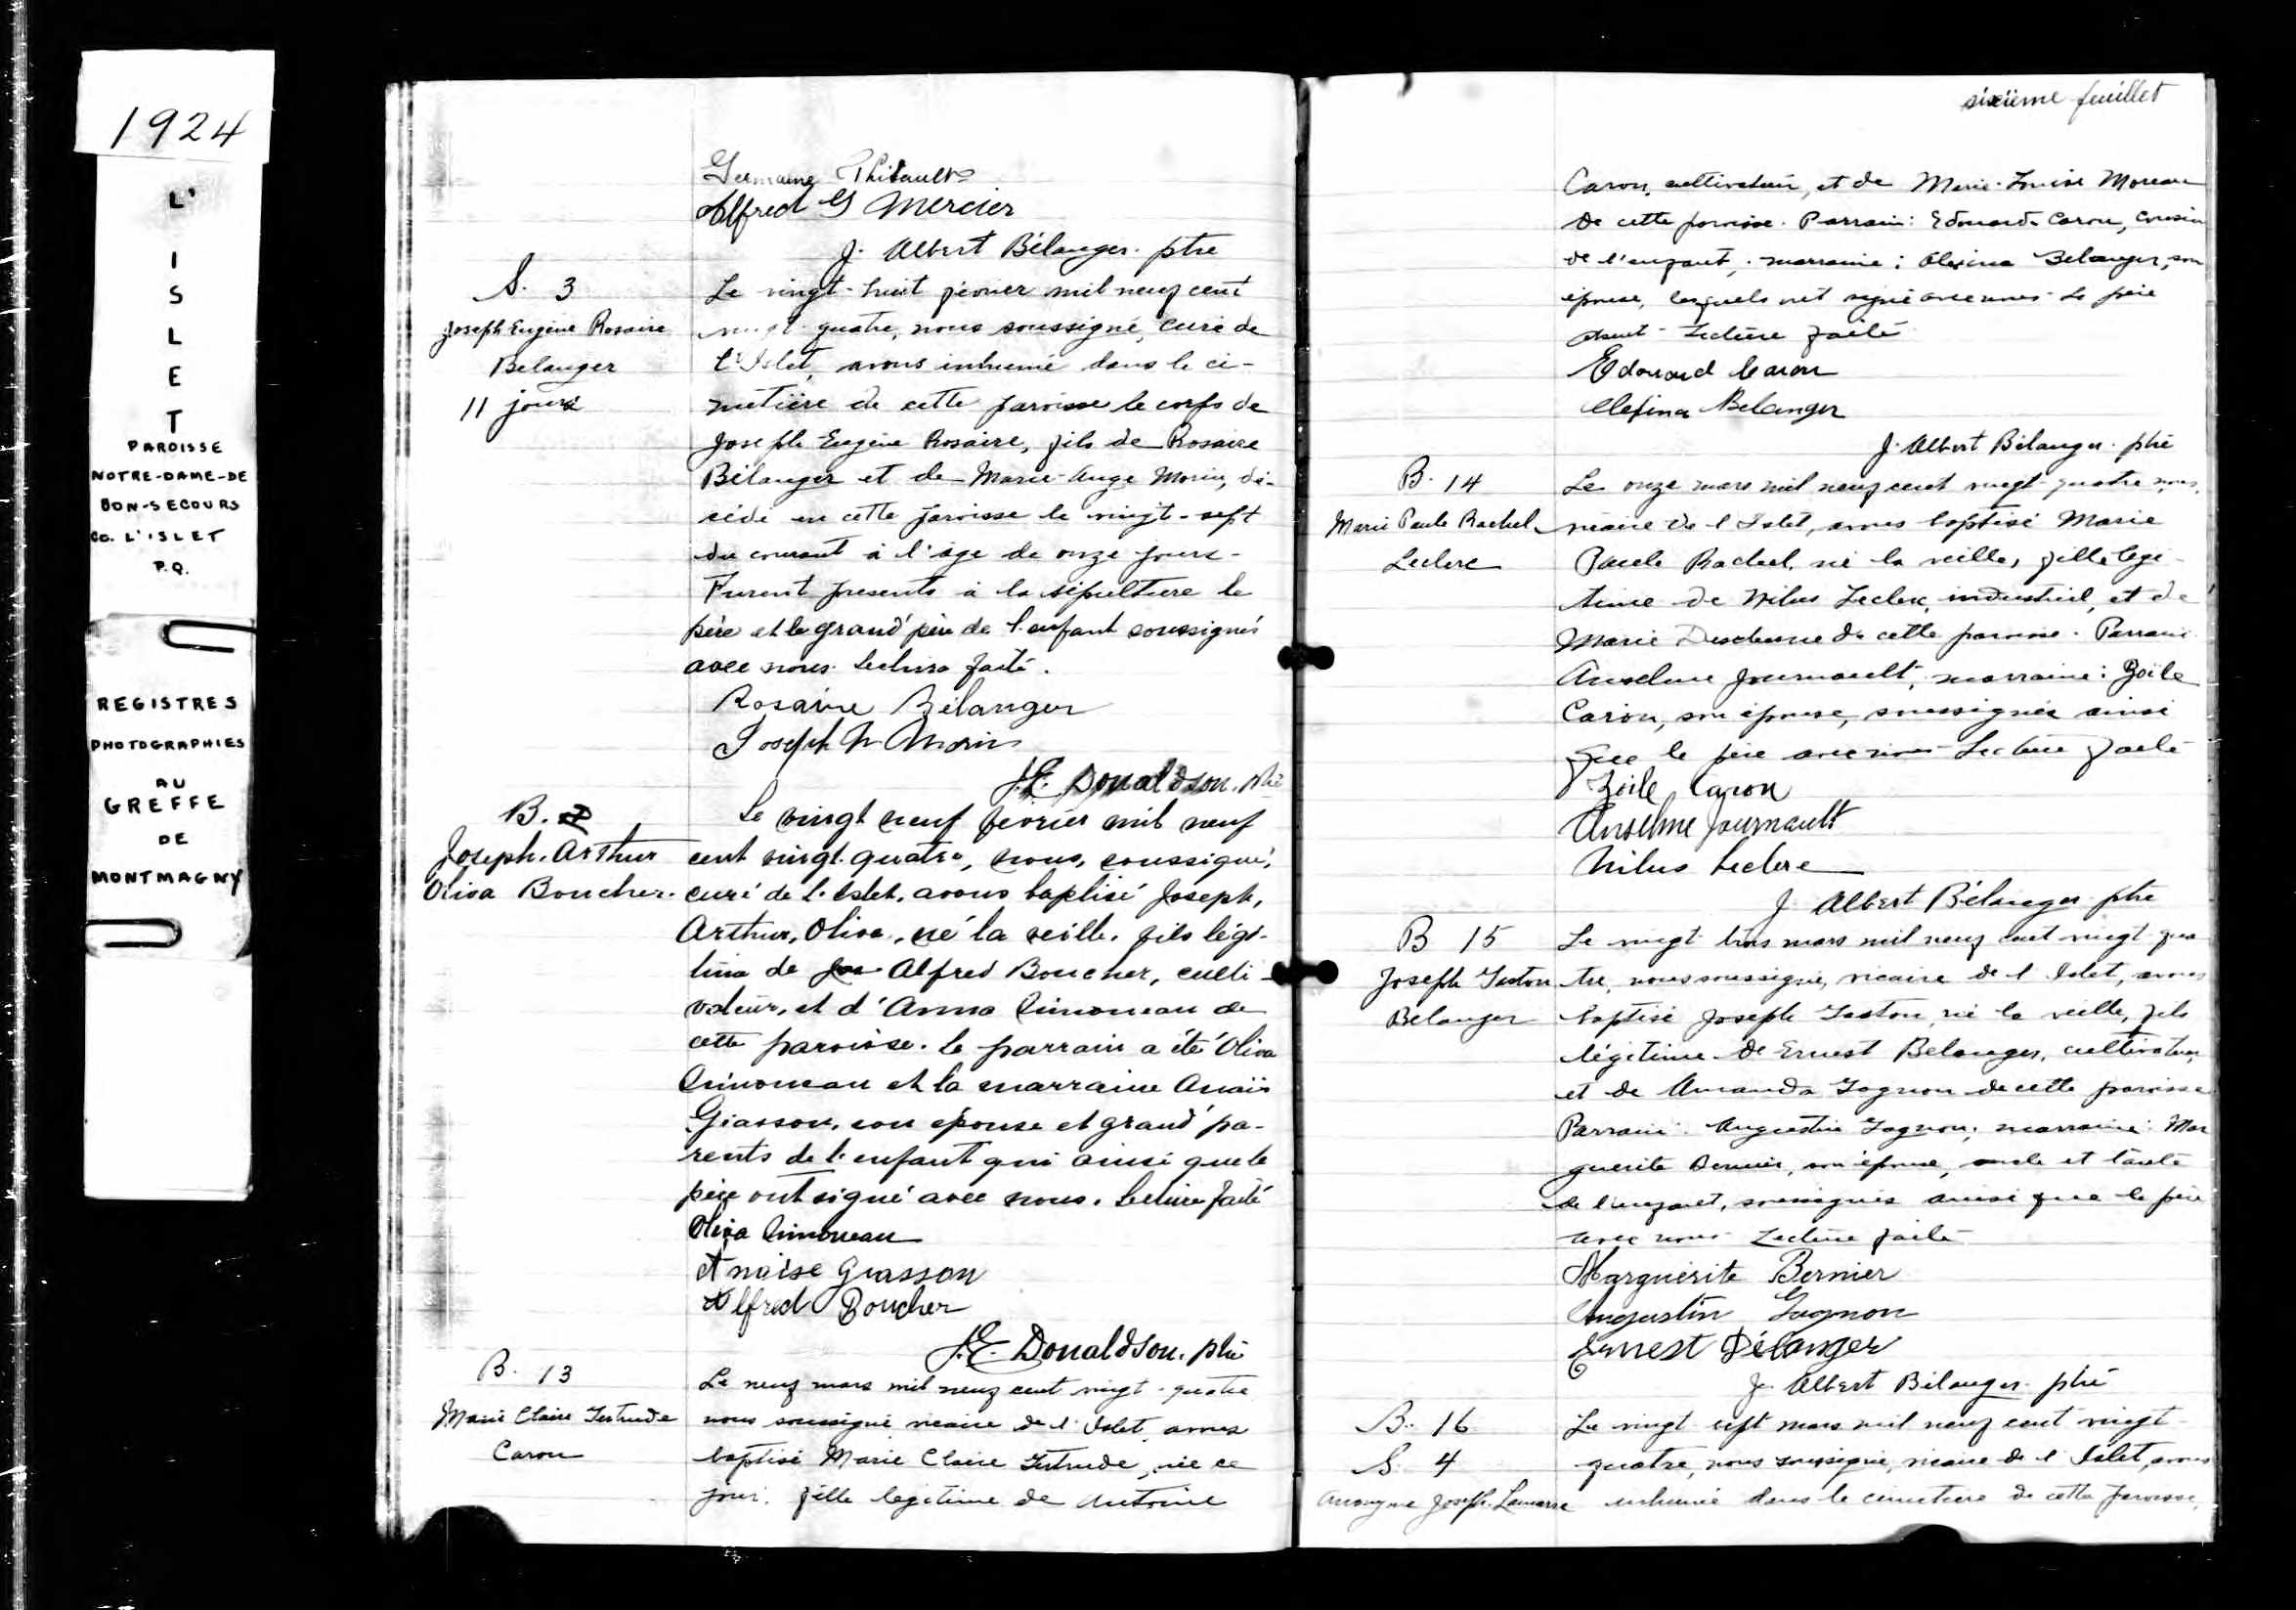 1924
L'
I
S
L
E
T
PAROISSE
NOTRE-DAME-DE
BON-SECOURS
Co. L'ISLET
P.Q.
REGISTRES
PHOTOGRAPHIES
AU
GREFFE
DE
MONTMAGNY
Germaine Thibault
Alfred G Mercier
J. Albert Bélanger ptre
S. 3
Joseph Eugène Rosaire
Belanger
11 jours
Le vingt-huit février mil neuf cent
vingt-quatre, nous soussigné, curé de
L'Islet, avons inhumé dans le ci-
metière de cette paroisse le corps de
Joseph-Eugène Rosaire, fils de Rosaire
Bélanger et de Marie-Ange Morin, dé-
cédé en cette paroisse le vingt-sept
du courant à l'âge de onze jours-
Furent présents à la sépulture le
père et le grand'père de l'enfant soussignés
avec nous. Lecture faite.
Rosaire Bélanger
Joseph N Morin
J.E. Donaldson. ptre
B.
Joseph. Arthur
Oliva Boucher.
Le vingt neuf février mil neuf
cent vingt-quatre, nous, soussigné,
curé de L'Islet, avons baptisé Joseph,
Arthur, Oliva, né la veille, fils légi-
time de Alfred Boucher, culti-
vateur, et d'Anna Simoneau de
cette paroisse. Le parrain a été Oliva
Simoneau et la marraine Anaïs
Giasson, son épouse et grand'pa-
rents de l'enfant qui ainsi que le
père ont signé avec nous. Lecture faite
Oliva Simoneau
Anaise Giasson
Alfred Boucher
J.E. Donaldson. ptre
B. 13
Marie Claire Gertrude
Caron
Le neuf mars mil neuf cent vingt-quatre
nous soussigné vicaire de l'Islet, avons
baptisé Marie Claire Gertrude, née ce
jour, fille légitime de Antoine
sixième feuillet
Caron, cultivateur, et de Marie-Louise Moreau
de cette paroisse. Parrain: Edouard Caron, cousin
de l'enfant, marraine: Alexina Belanger, son
épouse, lesquels ont signé avec nous. Le père
absent - Lecture faite
Edouard Caron
Belanger
J. Albert Bélanger ptre
B. 14
Marie Paule Rachel
Leclerc
Le onze mars mil neuf cent vingt-quatre nous,
vicaire de l'Islet, avons baptisé Marie
Paule Rachel, née la veille, fille légi-
time de Nilus Leclerc, industriel, et de
Marie Deschesne de cette paroisse. Parrain
Anselme Journault, marraine: Zoïle
Caron, son épouse, soussignés ainsi
que le père avec nous - Lecture faite
Zoile Caron
Anselme Journault
Nilus Leclerc
J. Albert Bélanger ptre
B 15
Joseph Gaston
Belanger
Le vingt-trois mars mil neuf cent vingt-qua
tre, nous soussigné, vicaire de l'Islet, avons
baptisé Joseph Gaston, né la veille, fils
légitime de Ernest Belanger, cultivateur,
et de Amanda Gagnon de cette paroisse
Parrain: Augustin Gagnon, marraine: Mar
guerite Bernier, son épouse, oncle et tante
de l'enfant, soussignés ainsi que le père
avec nous - Lecture faite
Marguerite Bernier
Augustin Gagnon
Ernest Bélanger
J. Albert Bélanger ptre
B. 16
S. 4
Anonyme Joseph Lamarre
Le vingt-sept mars mil neuf cent vingt-
quatre, nous soussigné, vicaire de l'Islet, avons
inhumé dans le cimetière de cette paroisse,